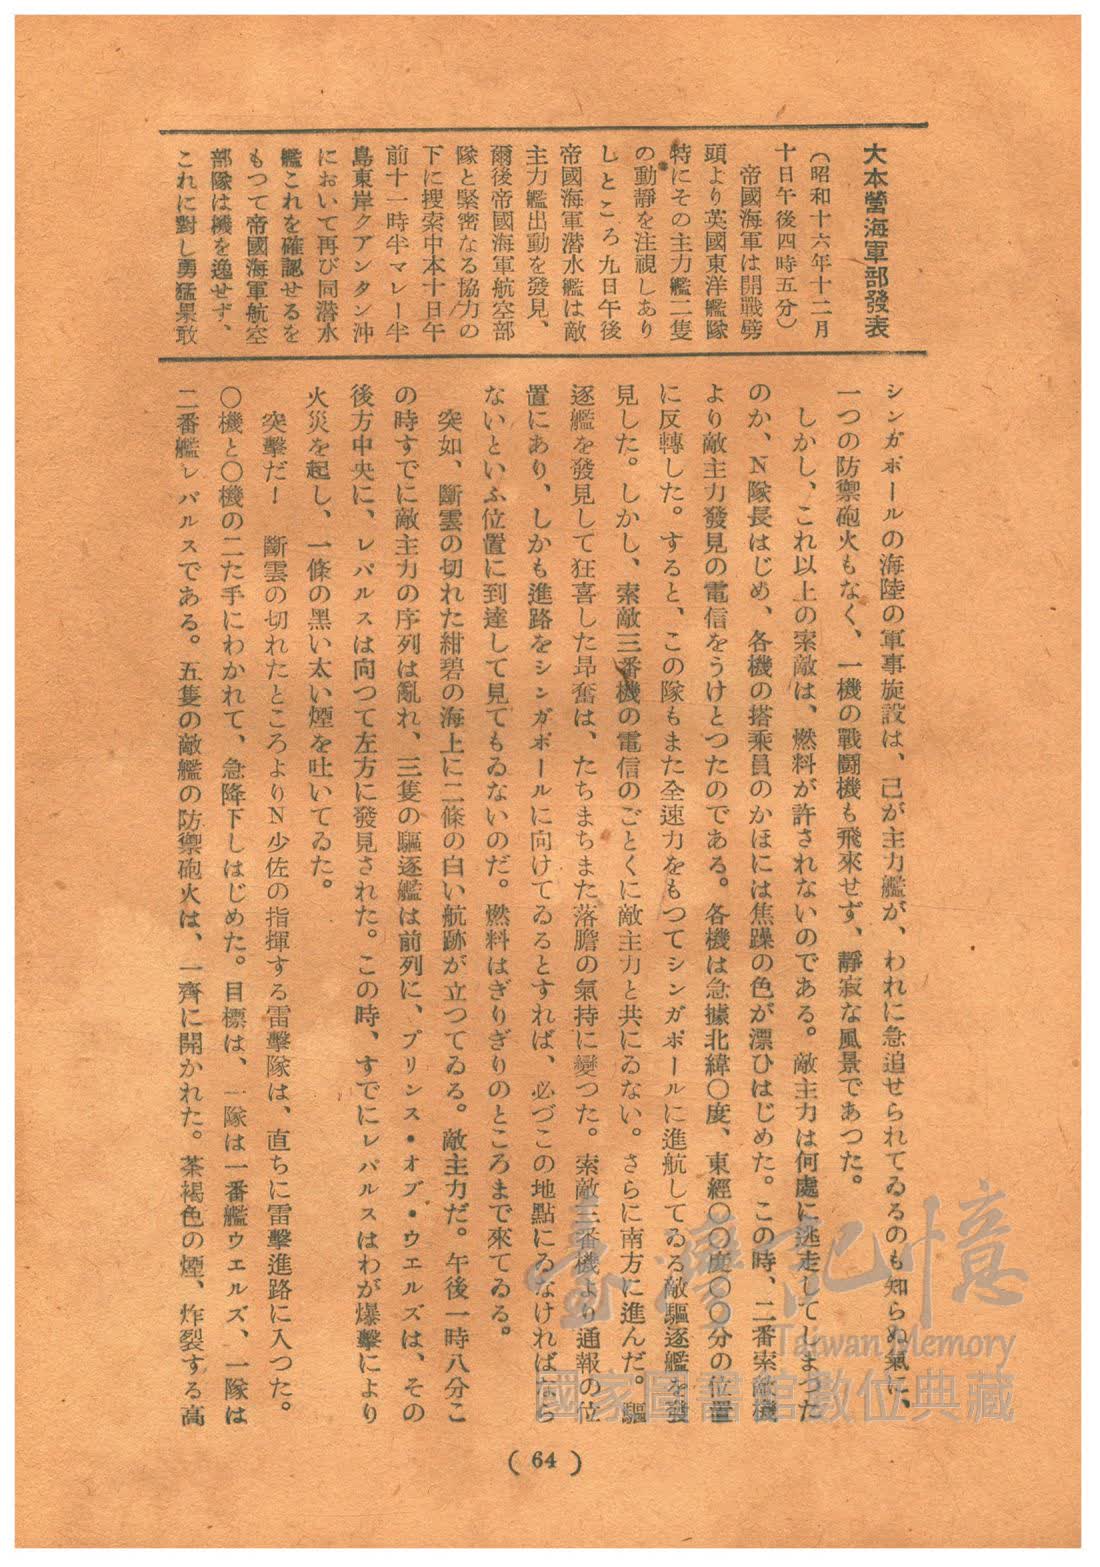 大本營海軍部發表
(昭和十六年十二月
十日午後四時五分)
帝國海軍は開戰劈
頭より英國東洋艦隊
特にその主力艦二隻
の動靜を注視しあり
しところ九日午後
帝國海軍潜水艦は敵
主力艦出動を發見、
爾後帝國海軍航空部
隊と緊密なる協力の
下に搜索中本十日午
前十一時半マレー半
島東岸クアンタン沖
において再び同潜水
艦これを確認せるを
もつて帝國海軍航空
部隊は機を逸せず、
これに對し勇猛果敢
シンガポールの海陸の軍事施設は、己が主力艦が、われに急追せられてゐるのも知らぬ氣に、
一つの防禦砲火もなく、一機の戰鬪機も飛來せず、靜寂な風景であつた。
しかし、これ以上の索敵は、燃料が許されないのである。敵主力は何處に逃走してしまつた
のか、N隊長はじめ、各機の搭乘員のかほには焦躁の色が漂ひはじめた。この時、二番索敵機
より敵主力發見の電信をうけとつたのである。各機は急據北緯〇度、東經〇〇度〇〇分の位置
に反轉した。すると、この隊もまた全速力をもつてシンガポールに進航してゐる敵驅逐艦を發
見した。しかし、索敵三番機の電信のごとくに敵主力と共にゐない。さらに南方に進んだ。驅
逐艦を發見して狂喜した昻奮は、たちまちまた落膽の氣持に變つた。索敵三番機より通報の位
置にあり、しかも進路をシンガポールに向けてゐるとすれば、必づこの地點にゐなければなら
ないといふ位置に到達して見てもゐないのだ。燃料はぎりぎりのところまで來てゐる。
突如、斷雲の切れた紺碧の海上に二條の白い航跡が立つてゐる。敵主力だ。午後一時八分こ
の時すでに敵主力の序列は亂れ、三隻の驅逐艦は前列に、プリンス・オブ・ウエルズは、その
後方中央に、レパルスは向つて左方に發見された。この時、すでにレパルスはわが爆擊により
火災を起し、一條の黑い太い煙を吐いてゐた。
突擊だ! 斷雲の切れたところよりN少佐の指揮する雷擊隊は、直ちに雷擊進路に入つた。
〇機と〇機の二た手にわかれて、急降下しはじめた。目標は、一隊は一番艦ウエルズ、一隊は
二番艦レパルスである。五隻の敵艦の防禦砲火は、一齊に開かれた。茶褐色の煙、炸裂する高
(64)
臺灣記憶
Taiwan Memory
國家圖書館數位典藏